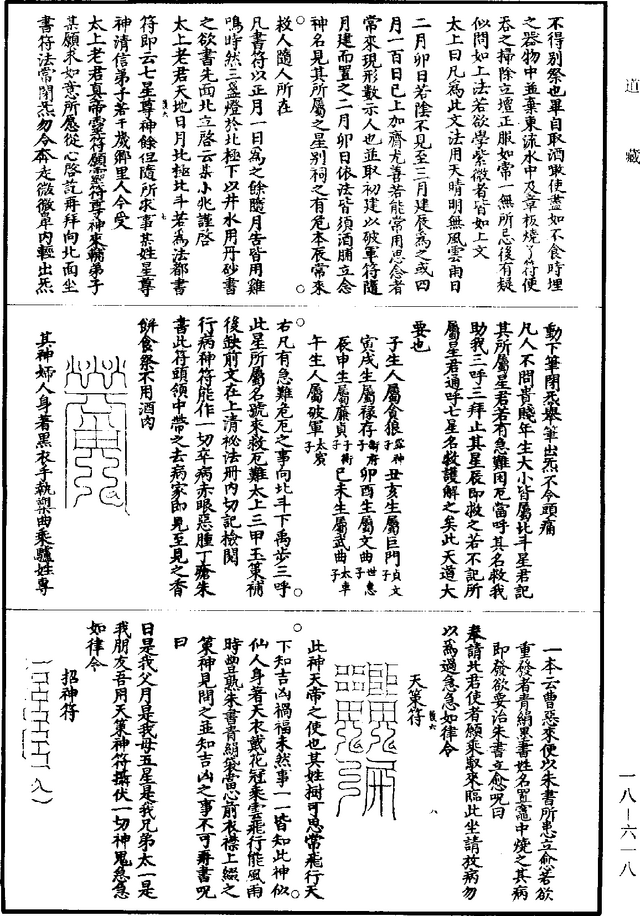 道藏
不得別祭也畢自取酒噉使盡如不食時埋
之器物中並棄東流水中及章板燒了符使
吞之掃除立壇正服如常一無所忌後有疑
似問如上法若欲學紫微者皆如上文
太上曰凡為此文法用天晴明無風雲雨日
二月卯日若陰不見至三月建辰為之或四
月一百日已上加齋尤善若能常用思念者
常來現形數示人也並取初建以破軍符隨
月建而置之二月卯日依法皆須酒脯立念
神名見其所屬之星別祠之有危本辰常來
救人隨人所在
凡書符以正月一日為之餘隨月吉皆用雞
鳴時然三盞燈於北極下以井水用丹砂書
之欲書先面北立啓云某小兆謹啓
太上老君天地日月北極北斗若為法都書
符即云七星尊神餘但隨所求事某姓星尊
神清信弟子若干歲鄉里人令受
太上老君真帝靈符願靈符尊神來輔弟子
某願求如意所應從心啓訖再拜向北面坐
書符法常閉炁勿令本走微微單內輕出炁
動下筆閉炁舉筆出炁不令頭痛
凡人不問貴賤年生大小皆屬北斗星君記
其所屬星君若有急難困厄當呼其名救我
助我三呼三拜止其星辰即救之若不記所
屬星君通呼七星名救護解之矣此天道大
要也
子生人屬貪狼子希神 丑亥生屬巨門子貞文
寅戌生屬祿存子衛府 卯酉生屬文曲子世惠
辰申生屬廉貞子衛 巳未生屬武曲子大東
午生人屬破軍子太賓
右凡有急難危厄之事向北斗下禹步三呼
此星所屬名號來救厄難太上三甲玉策補
後缺前文在上清祕法冊內切記檢閱
行病神符能作一切卒病赤眼惡腫丁瘡朱
書此符頭領中帶之去病家即見至見之香
餅食祭不用酒肉
其神婦人身著黑衣手執槊曲乘驢姓專
一本云曹惡來便以朱書所患立愈若欲
重發者青絹黑書姓名置竈中燒之其病
即發欲要治朱書立愈呪曰
奉請此君使者願乘馭來臨此坐請放病勿
以為過急急如律令
天策符
此神天帝之使也其姓樹可思常飛行天
下知吉凶禍福未然事一一皆知此神似
仙人身著天衣戴花冠乘雲飛行能風雨
時豐熟朱書青絹策當思前衣襟上綴之
策神見問之並知吉凶之事不可再書呪
曰
日是我父月是我母五星是我兄弟太一是
我朋友吾用天策神符攝伏一切神鬼急急
如律令
招神符
一八—六一八